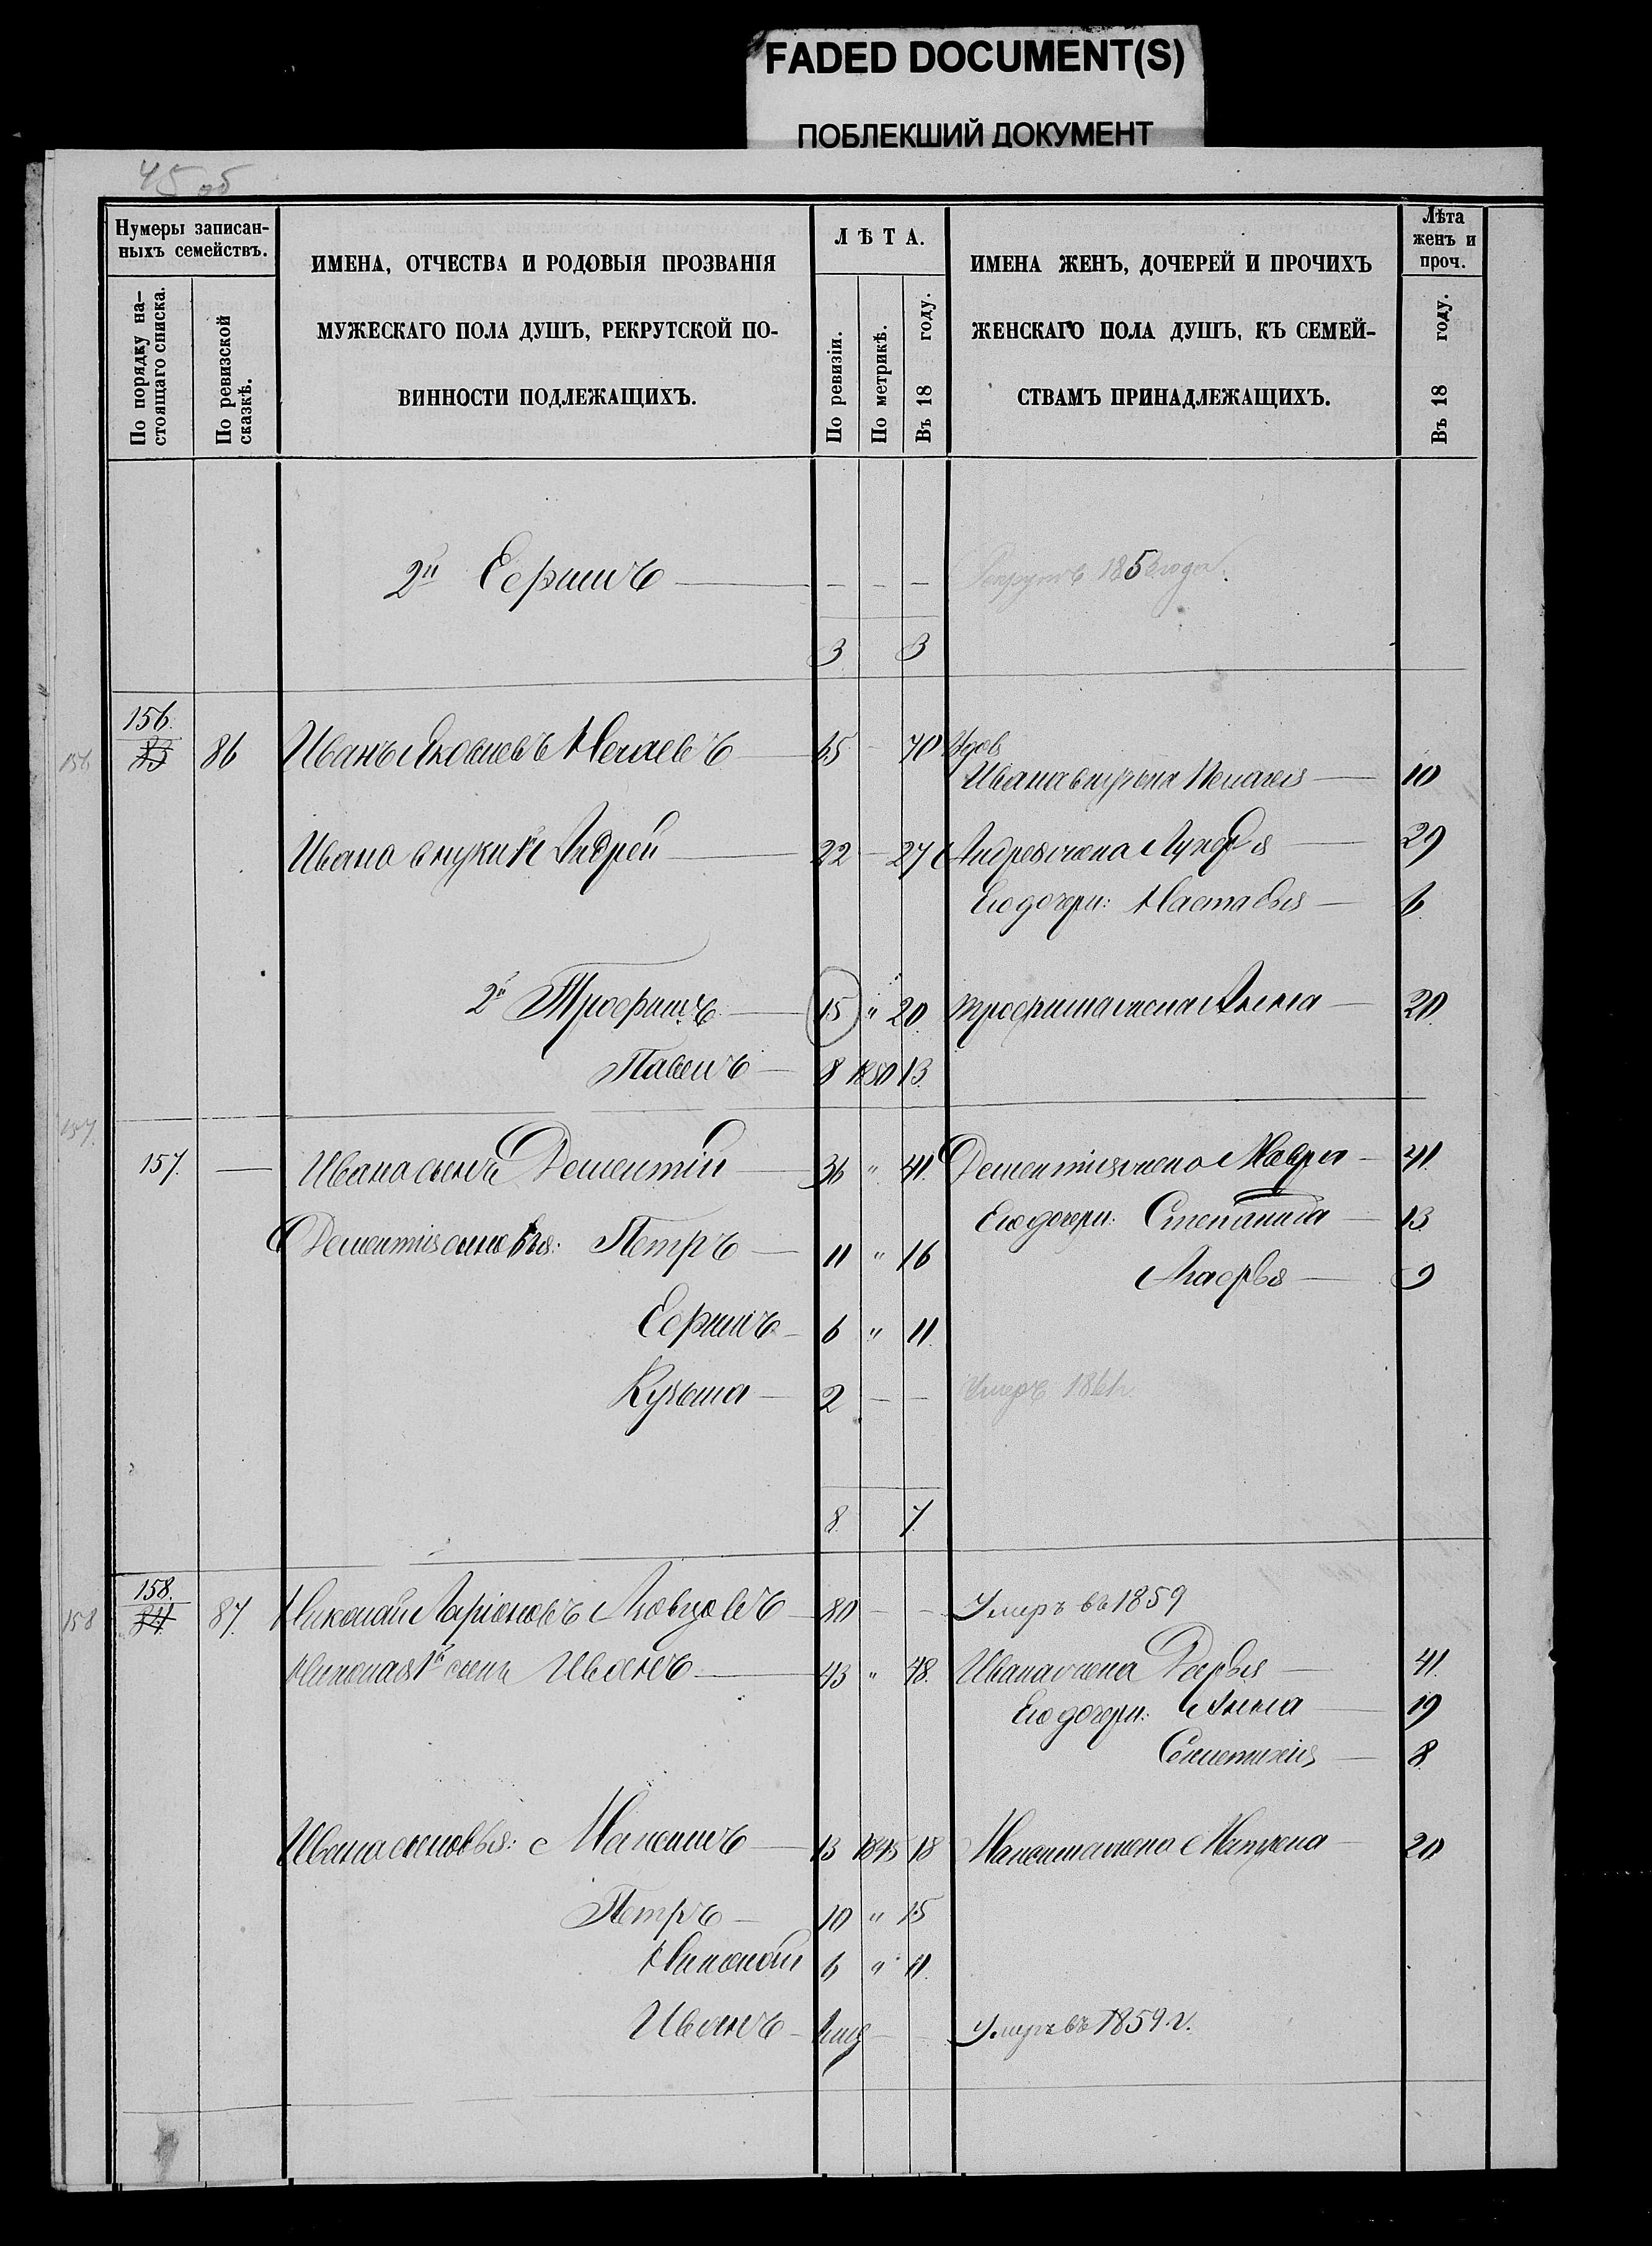 FADED DOCUMENT(S)
ПОБЛЕКШИЙ ДОКУМЕНТ
45 об
Нумеры записан-
ныхъ семействъ.
По порядку на-
стоящаго списка.
По ревизской
сказкѣ.
ИМЕНА, ОТЧЕСТВА И РОДОВЫЯ ПРОЗВАНІЯ
МУЖЕСКАГО ПОЛА ДУШЪ, РЕКРУТСКОЙ ПО-
ВИННОСТИ ПОДЛЕЖАЩИХЪ.
ЛѢТА.
По ревизіи.
По метрикѣ.
Въ 18 году.
ИМЕНА ЖЕНЪ, ДОЧЕРЕЙ И ПРОЧИХЪ
ЖЕНСКАГО ПОЛА ДУШЪ, КЪ СЕМЕЙ-
СТВАМЪ ПРИНАДЛЕЖАЩИХЪ.
Лѣта
женъ и
проч.
Въ 18 году.
2й Ефимъ — — — — Рекрутъ года.
3 3
156.
156 83 86 Иванъ Яковлевъ Нечаевъ — 65 — 70 Удов
Ивана внучька Пелагея —
Ивана внуки 1й Андрей — 22 — 27 Андрея жена Лукерья — 29
Его дочери: Настасья — 6
2й Трофимъ — 15 " 20 Трофима жена Анна — 20
Павелъ — 8 1850 13
157.
157. — Ивана сынъ Дементій — 36 " 41 Дементія жена Мавра — 41
Его дочери: Степанида — 13
Дементія сыновья: Петръ — 11 " 16
Агафья — 9
Ефимъ — 6 " 11
Кузьма — 2 — — Умеръ 1861г.
8 7
158.
158 84 87. Николай Ларіоновъ — 80 — — Умеръ въ 1859
Николая 1й сынъ Иванъ — 43 " 48. Ивана жена Дарья — 41.
Его дочери: Анна — 19
— 8
Ивана сыновья: Максимъ — 13 1845 18 Максима жена Матрена — 20
Петръ — 10 " 15
Николай 6 " 11
Иванъ — — — Умеръ въ 1859 г.